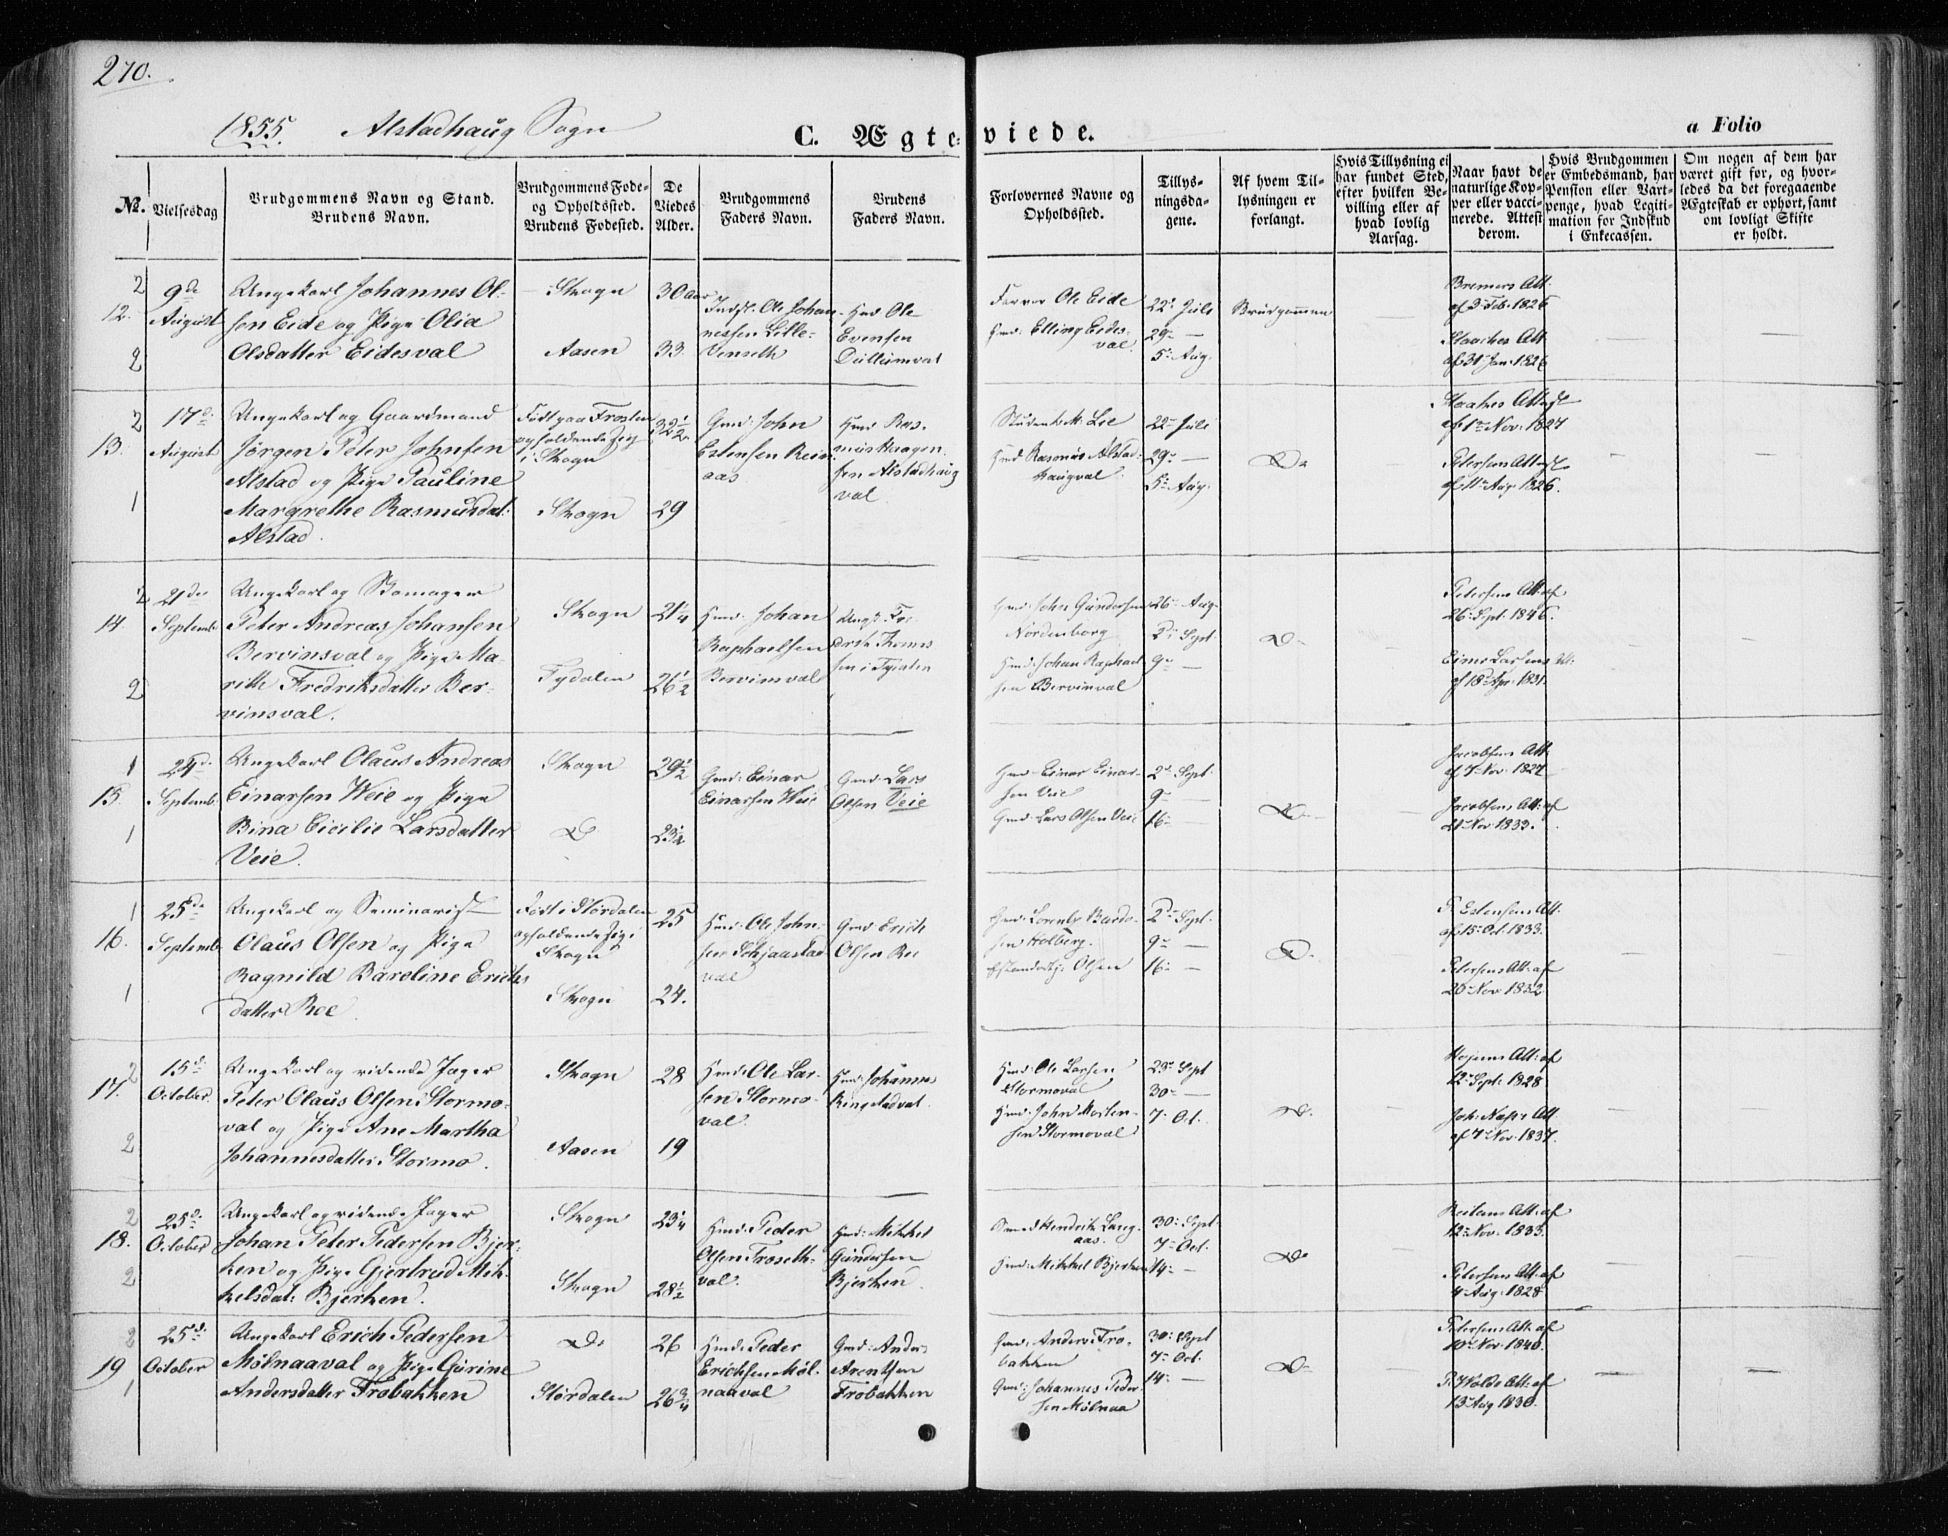 270.
1855. Alstadhaug Sogn
C. Ægteviede.
a Folio
No.
Vielsesdag
Brudgommens Navn og Stand.
Brudens Navn.
Brudgommens Føde-
og Opholdssted.
Brudens Fødested.
De
Viedes
Alder.
Brudgommens
Faders Navn.
Brudens
Faders Navn.
Forlovernes Navne og
Opholdssted.
Tillys-
ningsda-
gene.
Af hvem Til-
lysningen er
forlangt.
Hvis Tillysning ei
har fundet Sted,
efter hvilken Be-
villing eller af
hvad lovlig
Aarsag.
Naar havt de
naturlige Kop-
per eller vacci-
nerede. Attest
derom.
Hvis Brudgommen
er Embedsmand, har
Pension eller Vart-
penge, hvad Legiti-
mation for Indskud
i Enkecassen.
Om nogen af dem har
været gift for, og hvor-
ledes da det foregaaende
Ægteskab er ophørt, samt
om lovligt Skifte
er holdt.
2
12.
2
9de
August
Ungekarl Johannes Ol-
sen Eide og Pige Olia
Olsdatter Eidesval
Skogn
Aasen
30 Aar
33.
Indst. Ole Johan-
nessen Lille-
Venseth
Hmd Ole
Evensen
Dullumval
Farver Ole Eide
Hmd. Elling Eides-
val.
22de Juli
29 —
5. Aug.
Brudgommen
Bremers Att.
af 3 Feb. 1826
Haaches Att
af 31 Jan. 1826
2
13.
1
17de
August
Ungekarl og Gaardmand
Jørgen Peter Johnsen
Alstad og Pige Pauline
Margrethe Rasmusdat:
Alstad.
Født paa Frosten
opholdende sig
i Skogn
Skogn
32 1/2
29
Gmd. John
Estensen Rein-
aas
Hmd Ras-
mus Haagen-
sen Alstadhaug
val.
Student M. Lie
Hmd Rasmus Alstad-
haugval.
22 Juli
29 —
5. Aug.
Do
Haaches Attest
af 1 Nov. 1827
Petersens Attest
af 11 Aug 1826.
2
14.
2
21de
Septemb.
Ungekarl og Skomager
Peter Andreas Johansen
Bervinsval og Pige Ma-
rith Fredriksdatter Ber-
vinsval.
Skogn
Tydalen
21 1/4
26 1/2
Hmd. Johan
Raphaelsen
Bervinval
Hmd. John Gundersen
Nordenborg
Hmd. Johan Raphael-
sen Bervinval
26 Aug.
2. Sept.
9 —
Do
Petersens Att. af
26. Sept. 1846.
Einer Larsens Att:
af 18 Apr. 1831.
1
15.
1
24de
Septemb.
Ungekarl Olaus Andreas
Einarsen Weie og Pige
Bina Cicilie Larsdatter
Veie.
Skogn
Do
29 1/2
23 1/4
Gmd. Einar
Einarsen Weie
Gmd. Lars
Olsen Veie
Gmd. Einar Einar-
sen Veie
Gmd. Lars Olsen Veie
2 Sept.
9 —
16 —
Do
Jacobsens Att.
af 7 Nov. 1827
Jacobsens Att. af
21 Nov 1833.
1
16.
1
25de
Septemb
Ungekarl og Seminarist
Olaus Olsen og Pige
Ragnild Bareline Erichs
datter Roe
Født i Stordalen
opholdende sig i
Skogn
Skogn
25
24.
Hmd. Ole John-
sen
val
Gmd Erich
Olsen Roe
Gmd. Lorents Bardo-
sen Holberg.
Olsen
2 Sept.
9 —
16 —
Do
P. Estensens Att.
af 15 Oct. 1833.
Petersens Att. af
26 Nov 1832
2
17.
2
15de
October.
Ungekarl og ridende Jæger
Peter Olaus Olsen Stormo-
val og Pige Ane Martha
Johannesdatter Stormo.
Skogn
Aasen
28
19
Hmd. Ole Lar-
sen Stormo-
val.
Hmd. Johannes
Ringstadval.
Hmd. Ole Larsen
Stormoval
Hmd. John Morten-
sen Stormoval
23 Sept
30 —
7. Oct.
Do
Att. af
12 Sept. 1828
Joh: Næss Att.
af 7 Nov. 1837.
2
18.
2
25de
October
Ungekarl og ridende Jæger
Johan Peter Pedersen Bjer-
ken og Pige Gjertrud Mik-
kelsdat: Bjerken.
Skogn
Skogn
23 1/4
28 1/2
Hmd. Peder
Olsen Froseth-
val.
Hmd. Mikkel
Gundersen
Bjerken.
Smed Hendrik Lang-
aas.
Hmd. Mikkel Bjerken
30. Sept.
7. Oct.
14 —
Do
Reitans Att. af
12 Nov. 1833.
Petersens Att. af
4 Aug. 1828
2
19
1
25de
October
Ungekarl Erich Pedersen
Mølnaaval og Pige Gurine
Andersdatter Trobakken
Do
Stordalen
26
26 3/4
Hmd. Peder
Erichsen Møl-
naaval
Gmd: Anders
Arentsen
Frobakken
Gmd: Anders Fro-
bakken
Gmd: Johannes Peder-
sen Mølnaa
30. Sept
7. Oct.
14 —
Do
Petersens Att. af
10 Nov. 1840.
P. Wolds Att. af
13 Aug 1830.